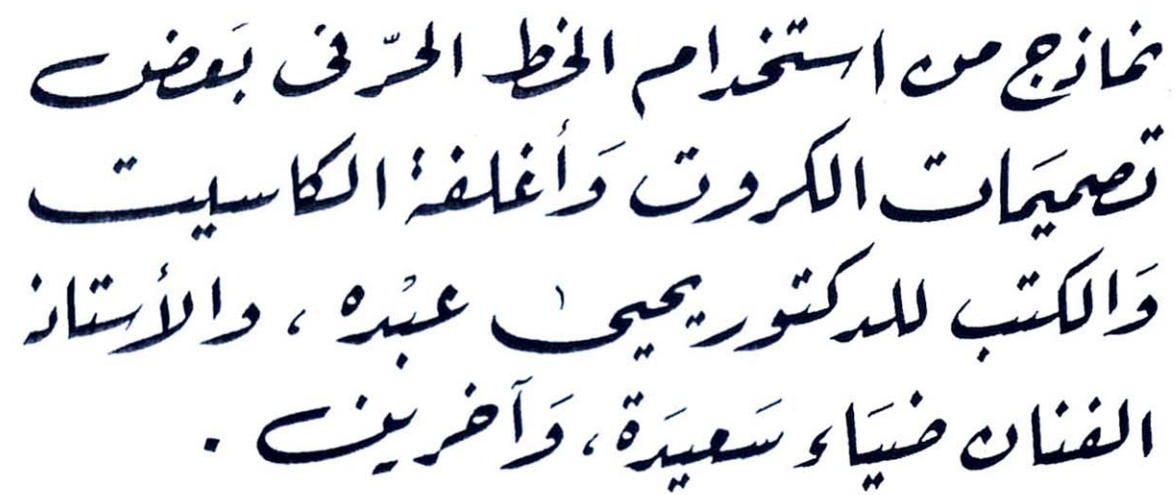 نماذج من استخدام الخط الحرّ فى بَعض
تصميَمات الكروت وَأغلفة الكاسيت
وَالكتب للدكتور يحيىٰ عبْده ، والأستاذ
الفنان ضيَاء سَعيدَة ، وَآخرين .